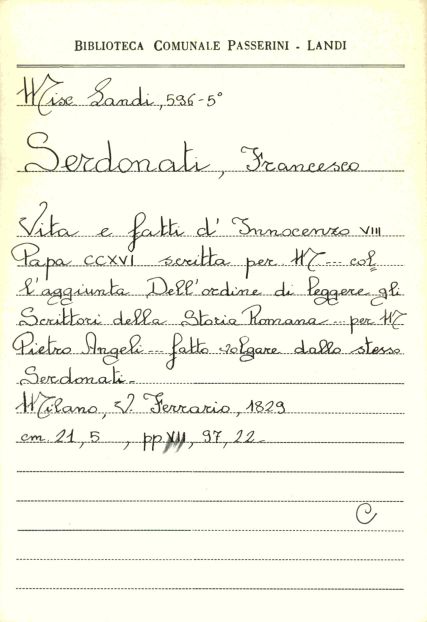 BIBLIOTECA COMUNALE PASSERINI - LANDI
Misc Landi, 596-5°
Serdonati, Francesco
Vita e fatti d' Innocenzo VIII
Papa CCXVI scritta per M--- col
l'aggiunta Dell'ordine di leggere gli
Scrittori della Storia Romana--- per M
Pietro Angeli--- fatto volgare dallo stesso
Serdonati-
Milano, V. Ferrario, 1829
cm 21,5 , pp VII, 97, 22-
C